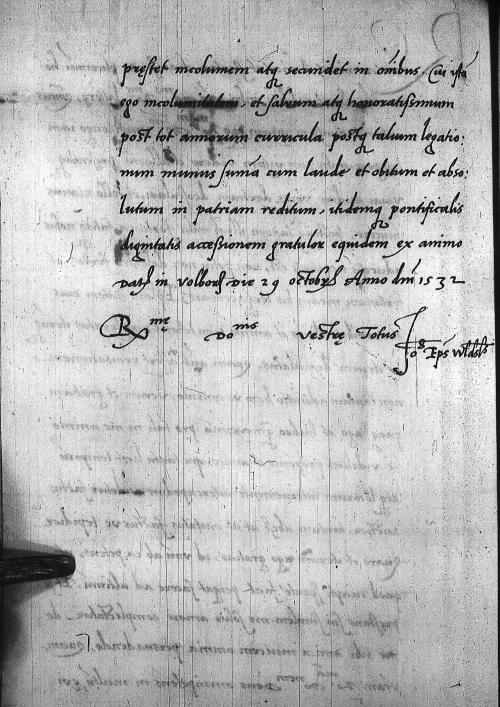 pręstet incolumem atq secundet in omibus. Cui ista
ego incolumitatem, et salvum atq honoratissimum
post tot annorum curricula postq talium legatio:
num munus suma cum laude et obitum et abso:
lutum in patriam reditum, itidemq pontificalis
dignitatis accessionem gratulor equidem ex animo
Dat in Volborz Die 29 octobris Anno dni 1532
Rmę Donis Vestrę Totus
Jo Eps